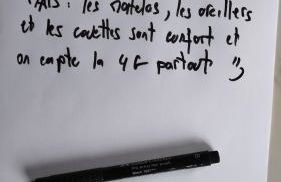 MAIS : les matelas, les oreillers
et les couettes sont confort et
on capte la 4G partout ",